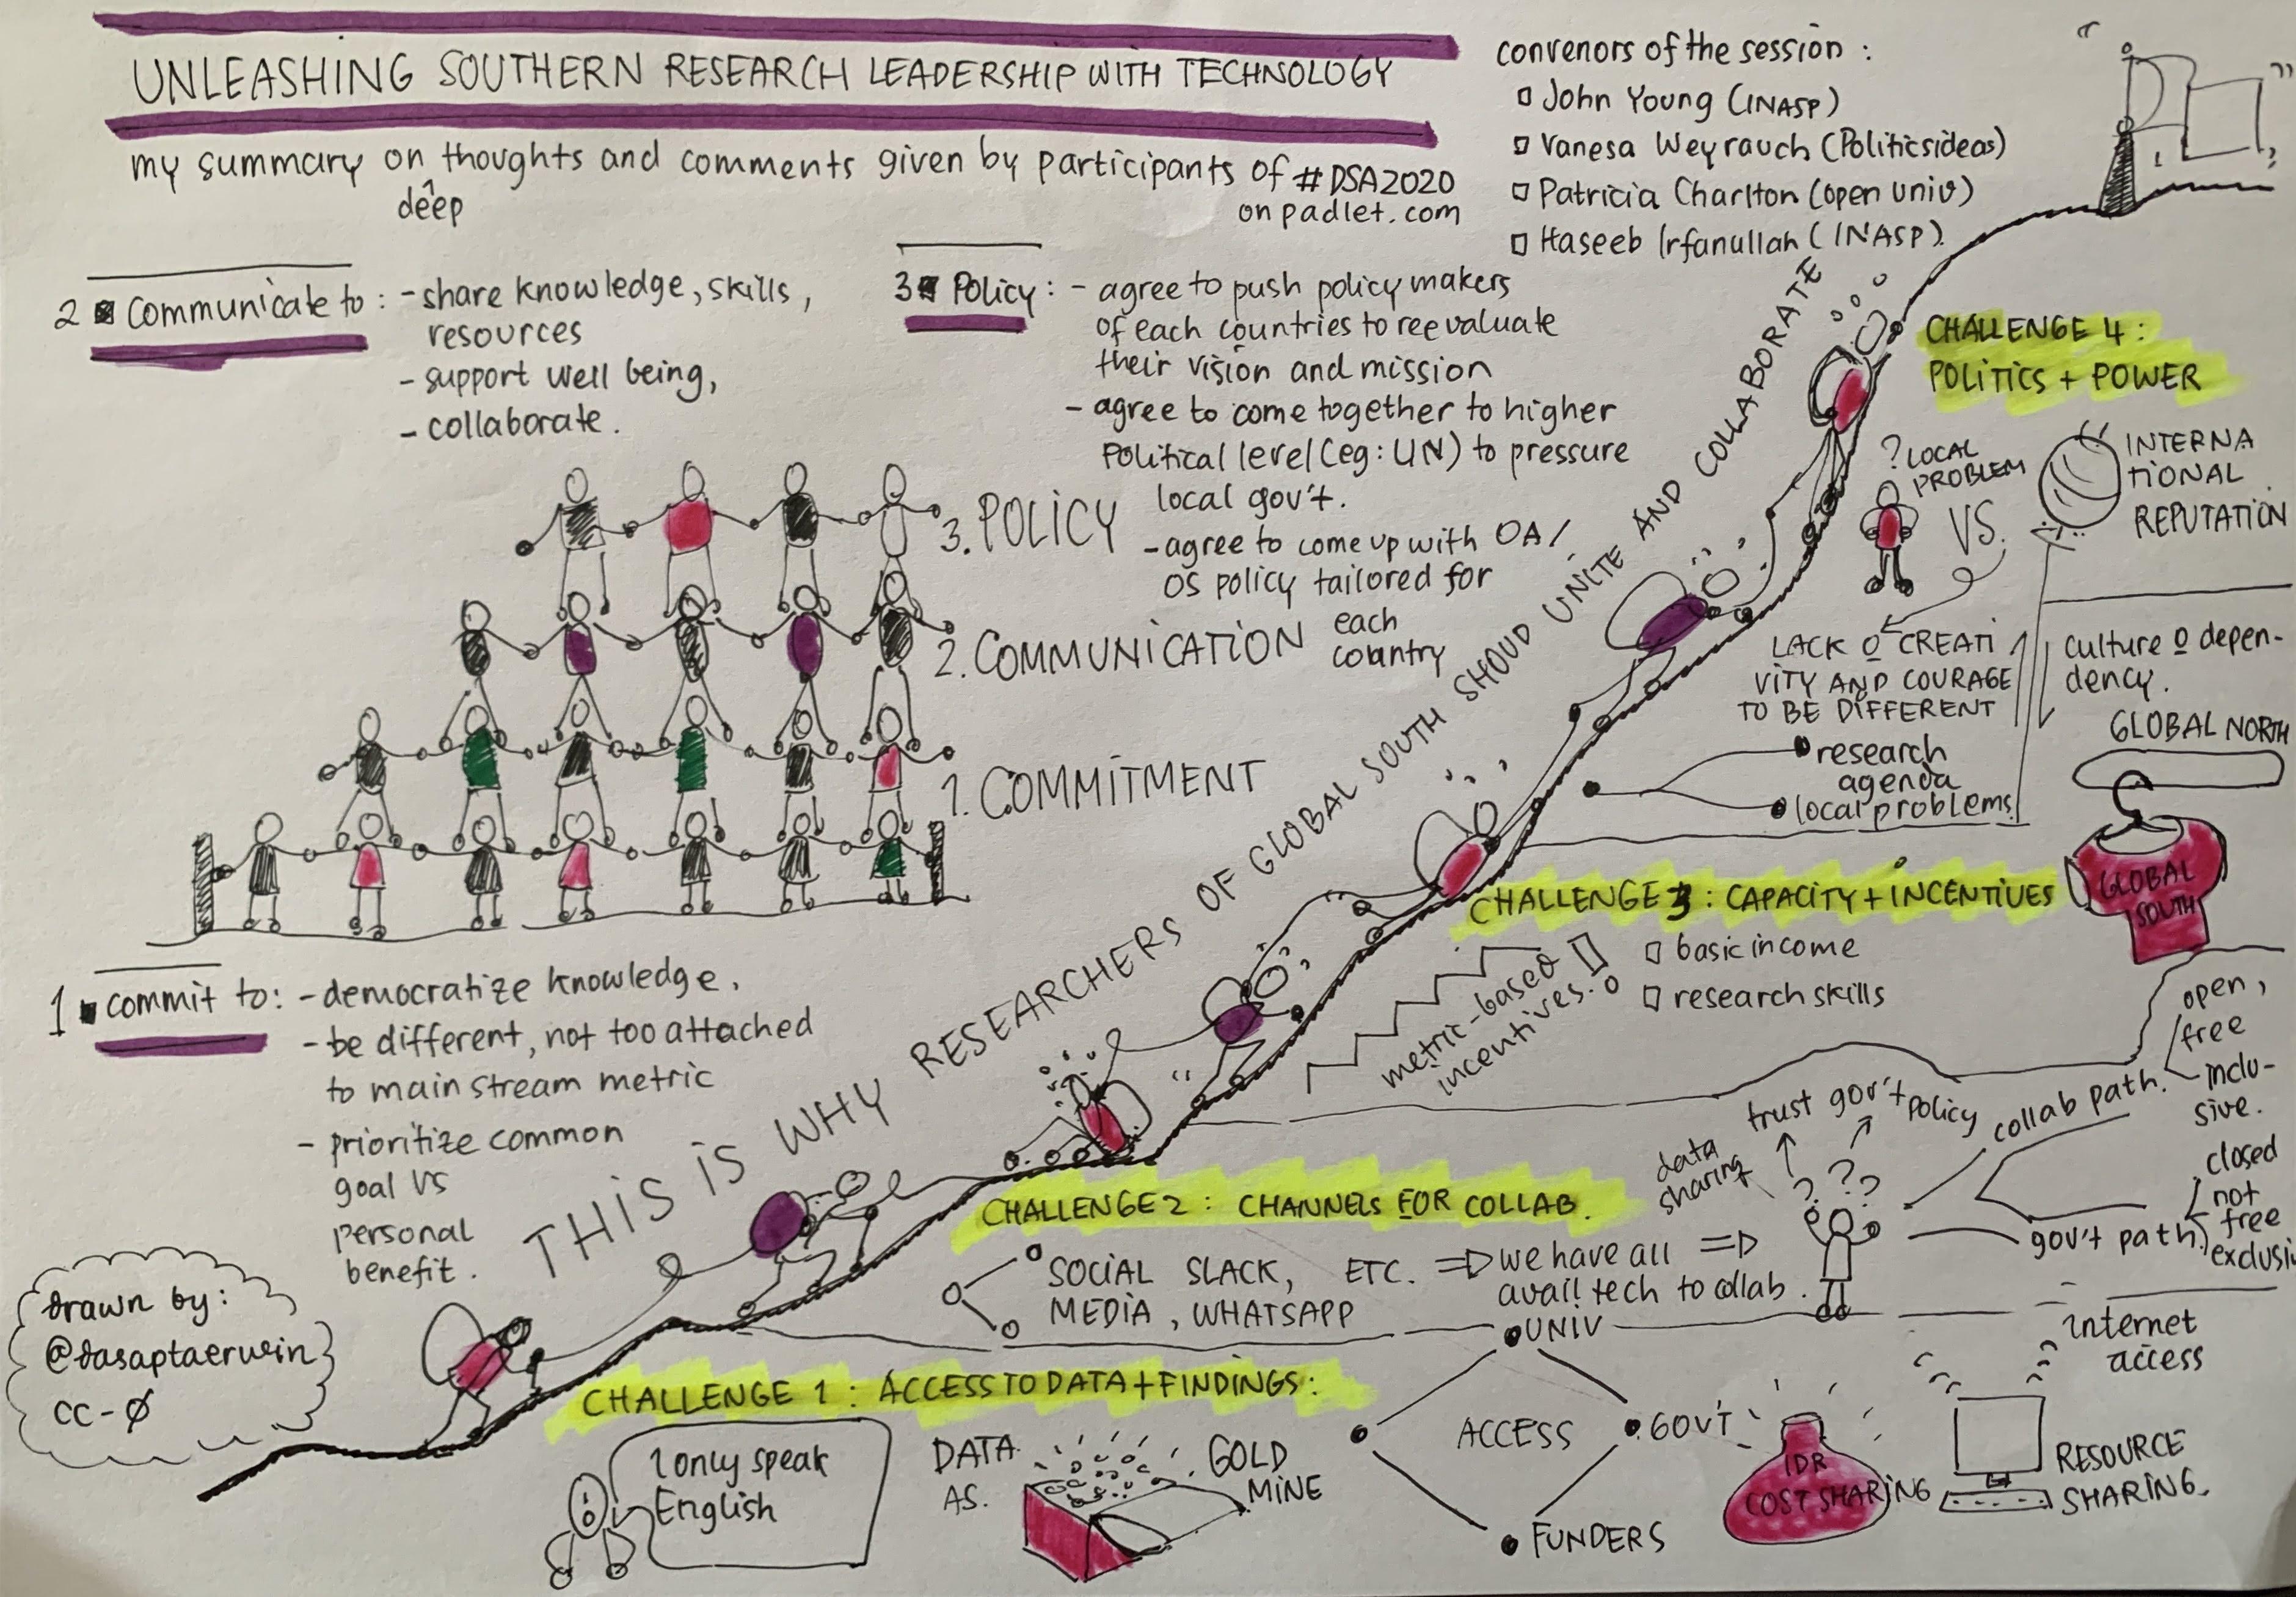 UNLEASHING SOUTHERN RESEARCH LEADERSHIP WITH TECHNOLOGY
my summary on thoughts and comments given by participants of #DSA2020
deep
on padlet.com
convenors of the session :
John Young (INASP)
Vanesa Weyrauch (Politicsideas)
Patricia Charlton (open univ)
Haseeb Irfanullah (INASP)
2 communicate to : - share knowledge, skills,
resources
- support well being,
- collaborate.
3 Policy : - agree to push policy makers
of each countries to reevaluate
their vision and mission
- agree to come together to higher
Political level (eg: UN) to pressure
local gov't.
- agree to come up with OA/
OS policy tailored for
each
country
3. POLICY
2. COMMUNICATION
1. COMMITMENT
1 commit to: - democratize knowledge,
- be different, not too attached
to main stream metric
- prioritize common
goal vs
personal
benefit.
THIS IS WHY RESEARCHERS OF GLOBAL SOUTH SHOUD UNITE AND COLLABORATE
CHALLENGE 4 :
POLITICS + POWER
? LOCAL
PROBLEM
VS.
INTERNA
TIONAL
REPUTATION
LACK O CREATI
VITY AND COURAGE
TO BE DIFFERENT
culture o depen-
dency.
research
agenda
local problems
GLOBAL NORTH
GLOBAL
SOUTH
CHALLENGE 3 : CAPACITY + INCENTIVES
metric-based
incentives.
basic income
research skills
CHALLENGE 2 : CHANNELS FOR COLLAB.
SOCIAL SLACK, ETC. => we have all =>
MEDIA, WHATSAPP avail tech to collab.
data
sharing
trust gov't policy
? ? ?
collab path.
open,
free
inclu-
sive.
gov't path.
closed
not
free
exclusi
CHALLENGE 1 : ACCESS TO DATA + FINDINGS:
I only speak
English
DATA
AS.
GOLD
MINE
UNIV
ACCESS
GOV'T
FUNDERS
IDR
COST SHARING
internet
access
RESOURCE
SHARING.
drawn by:
@dasaptaerwin
CC-Ø